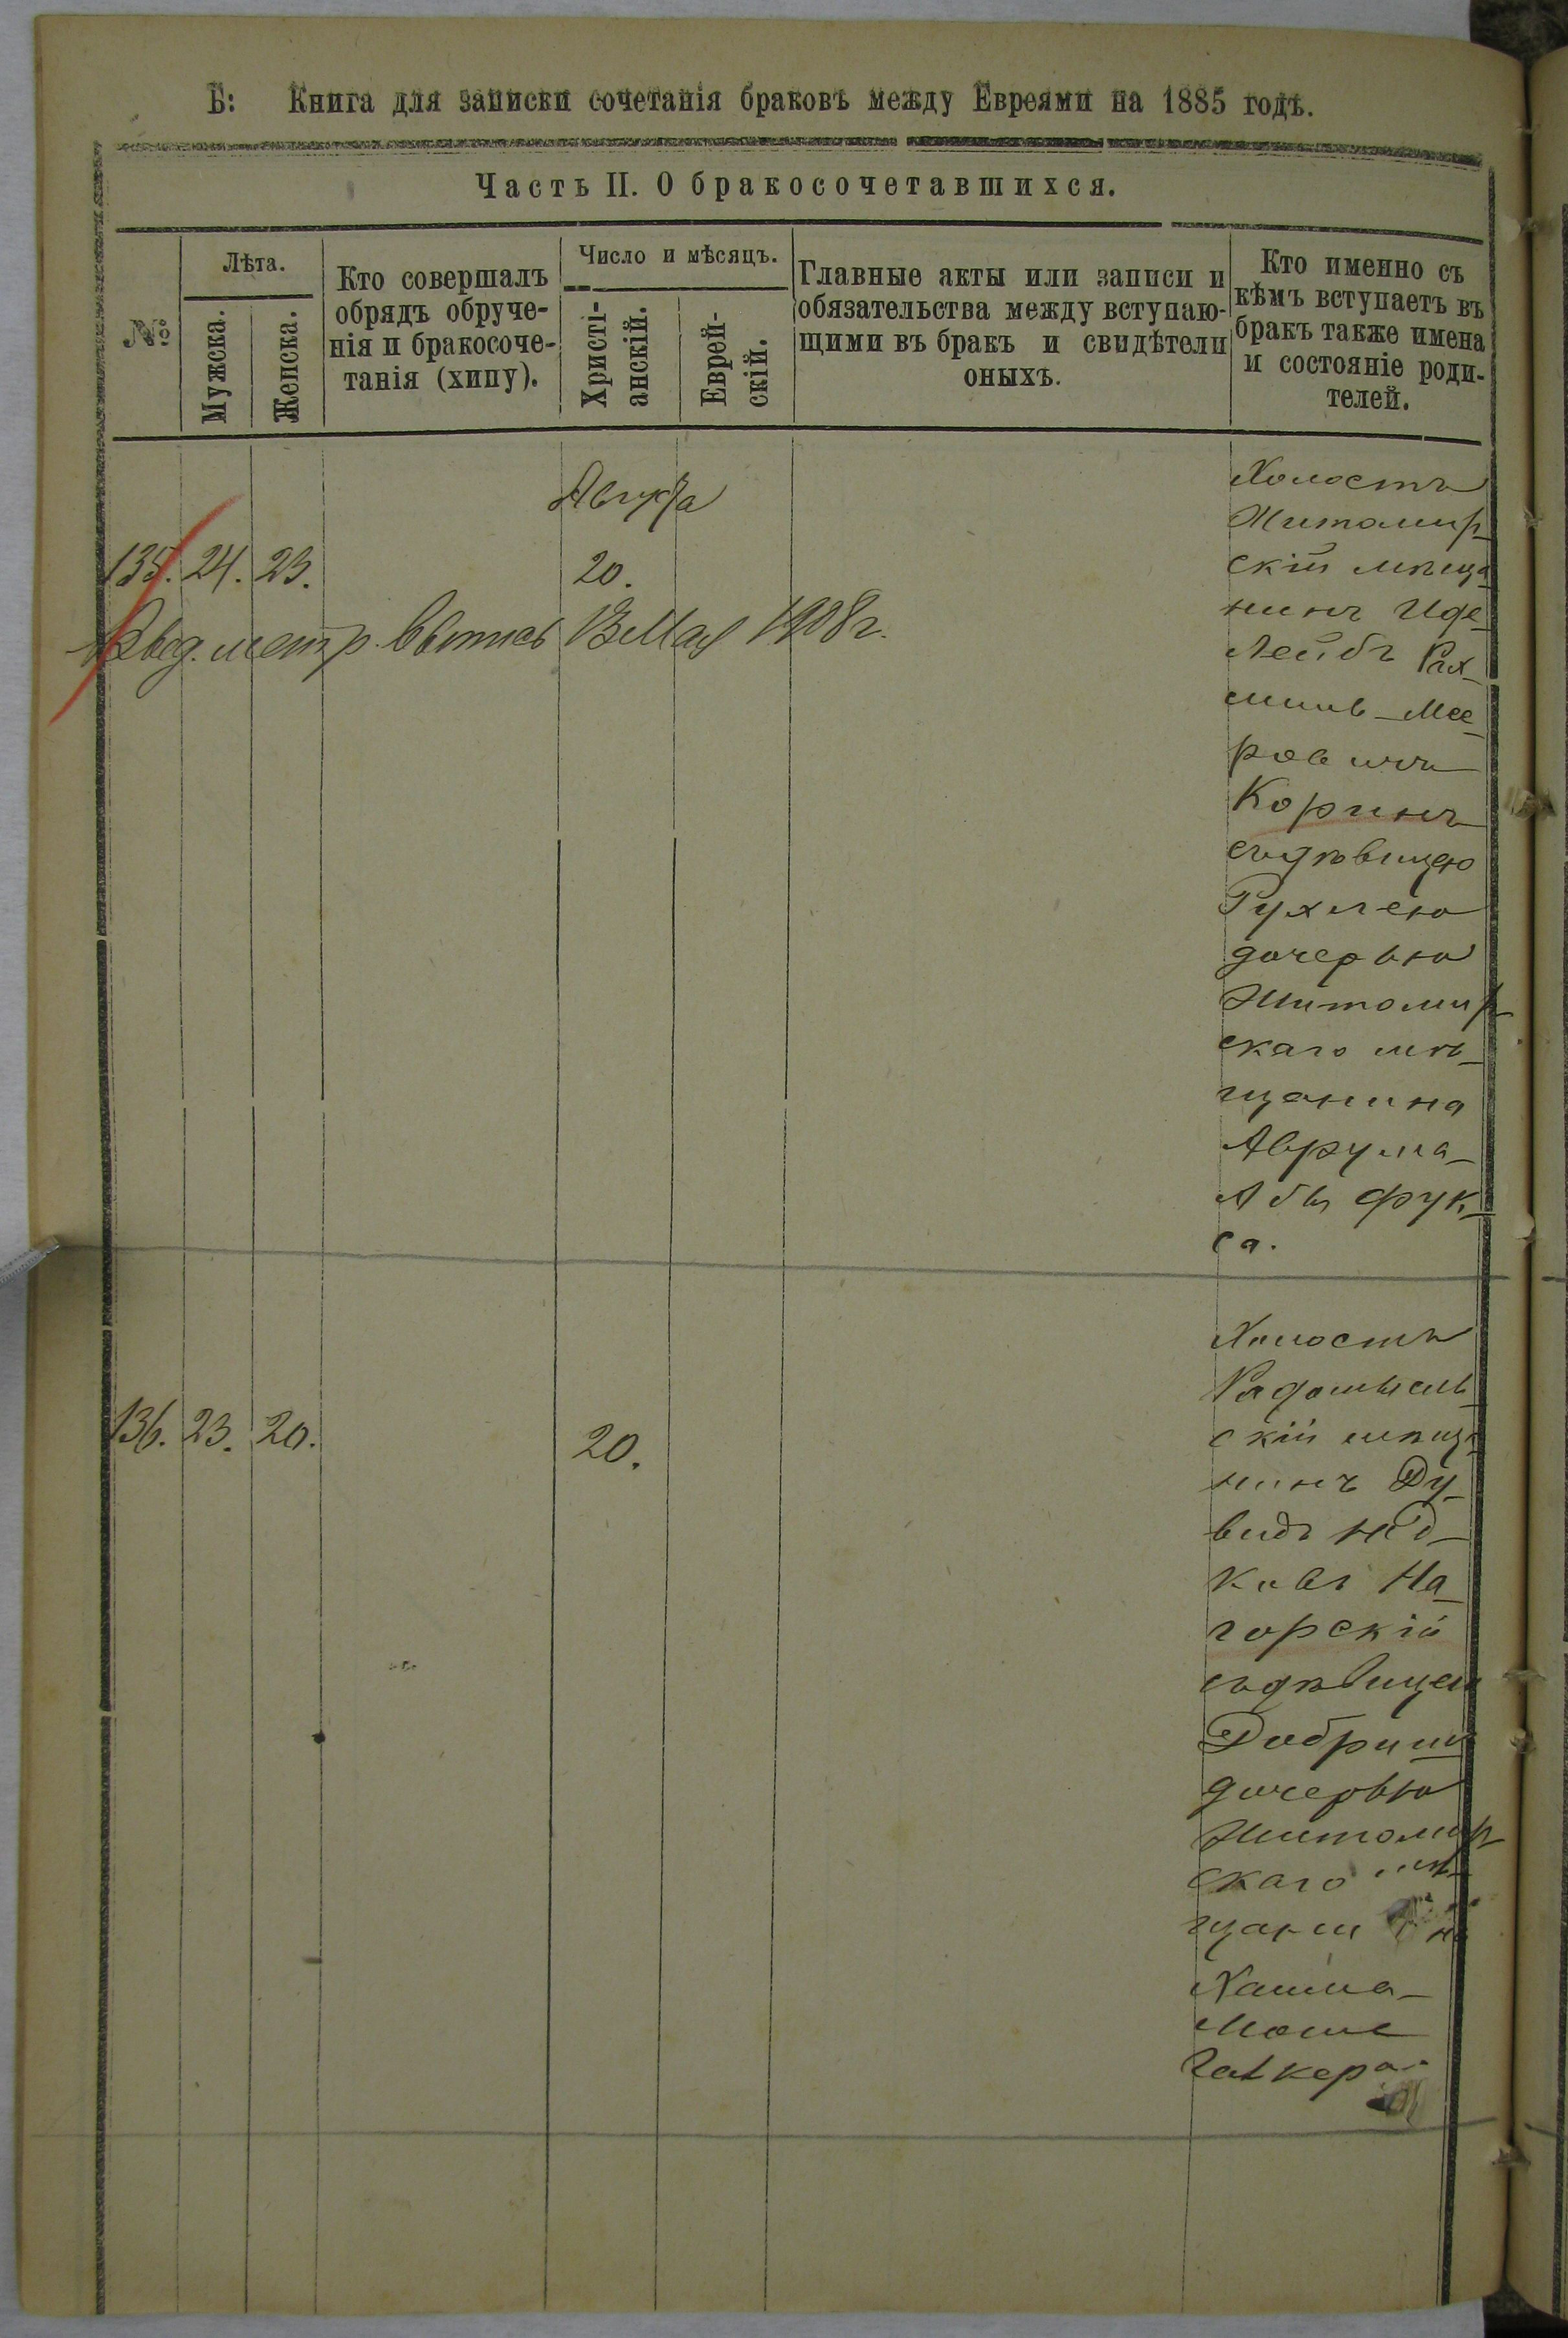 Б: Книга для записки сочетанія браковъ между Евреями на 1885 годъ.
Часть II. О бракосочетавшихся.
№
Лѣта.
Мужска.
Женска.
Кто совершалъ
обрядъ обруче-
нія и бракосоче-
танія (хипу).
Число и мѣсяцъ.
Христі-
анскій.
Еврей-
скій.
Главные акты или записи и
обязательства между вступаю-
щими въ бракъ и свидѣтели
оныхъ.
Кто именно съ
кѣмъ вступаетъ въ
бракъ также имена
и состояніе роди-
телей.
Августа
135. 24. 23. 20.
метр. 13 Мая 1908 г.
Холостъ
Житомир-
скій мѣща
нинъ Иде-
Лейбъ Рах-
миль-Мее-
ровичъ
Коринъ
съ дѣвицею
Рухлею
дочерью
Житомир
скаго мѣ-
щанина
Аврума-
Абы Фук-
са.
136. 23. 20. 20.
Холостъ
Радомысль-
скій мѣща
нинъ Ду-
видъ
На-
горскій
съ дѣвицею
дочерью
Житомир
скаго мѣ-
Хаима-
Моше